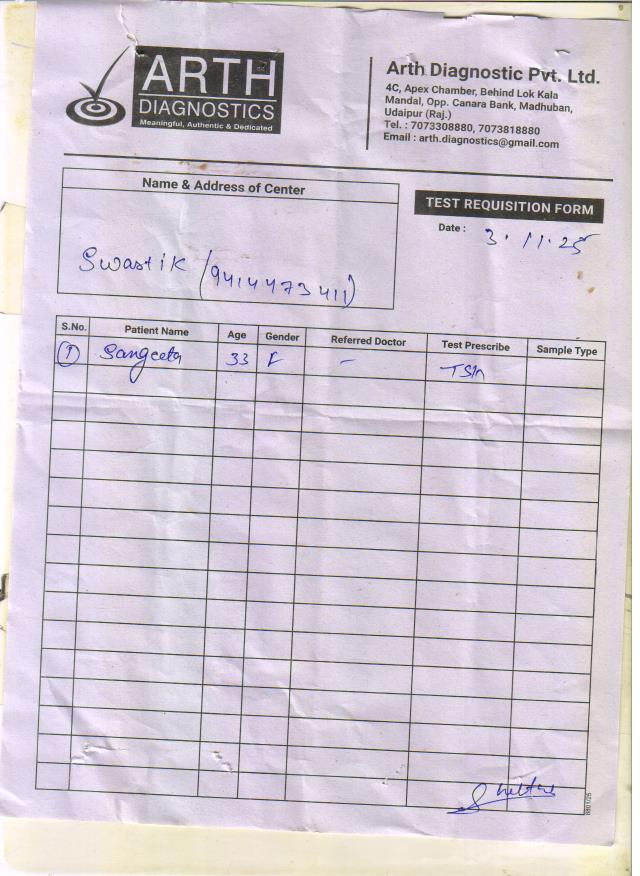 ARTH
DIAGNOSTICS
Meaningful, Authentic & Dedicated
Arth Diagnostic Pvt. Ltd.
4C, Apex Chamber, Behind Lok Kala
Mandal, Opp. Canara Bank, Madhuban,
Udaipur (Raj.)
Tel. : 7073308880, 7073818880
Email : arth.diagnostics@gmail.com
Name & Address of Center
Swastik (9414473411)
TEST REQUISITION FORM
Date : 3.11.25
S.No. Patient Name Age Gender Referred Doctor Test Prescribe Sample Type
1 Sangeeta 33 F -